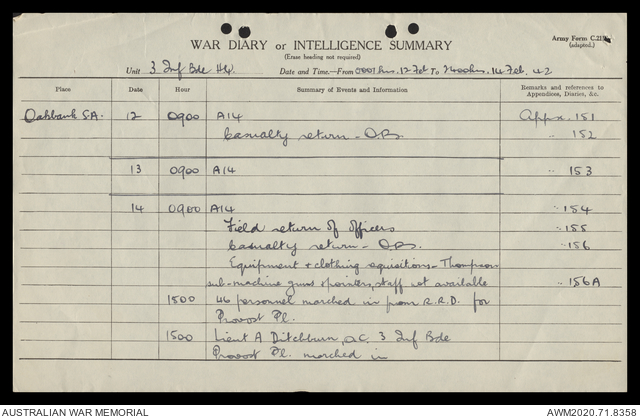 Army Form C.2118
(adapted.)
WAR DIARY or INTELLIGENCE SUMMARY
(Erase heading not required)
Unit 3 Inf Bde HQ. Date and Time.—From 0001 hrs. 12 Feb To 2400 hrs. 14 Feb. 42
Place Date Hour Summary of Events and Information Remarks and references to
Appendices, Diaries, &c.
Oakbank S.A. 12 0900 A14 Appx. 151
Casualty return - ORs. " 152
13 0900 A14 " 153
14 0900 A14 " 154
Field return of officers " 155
Casualty return - ORs. " 156
Equipment & clothing - Thompson
sub-machine guns staff not available " 156A
1500 46 personnel marched in from R.R.D. for
Provost Pl.
1500 Lieut A Ditchburn, O.C. 3 Inf Bde
Provost Pl. marched in
AUSTRALIAN WAR MEMORIAL AWM2020.71.8358